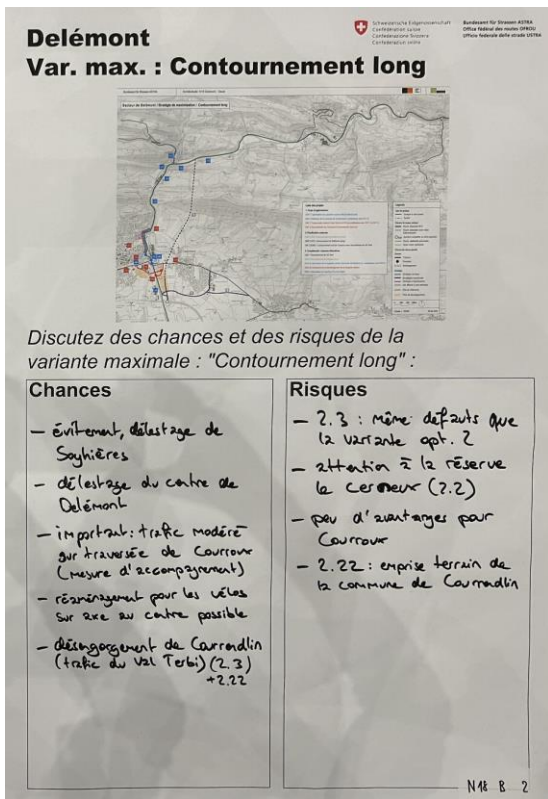 Delémont
Var. max. : Contournement long
Schweizerische Eidgenossenschaft
Confédération suisse
Confederazione Svizzera
Confederaziun svizra
Bundesamt für Strassen ASTRA
Office fédéral des routes OFROU
Ufficio federale delle strade USTRA
Discutez des chances et des risques de la
variante maximale : "Contournement long" :
Chances
– évitement, délestage de
Soyhières
– délestage du centre de
Delémont
– important : trafic modéré
sur traversée de Courroux
(mesure d'accompagnement)
– réaménagement pour les vélos
sur axe au centre possible
– désengorgement de Courrendlin
(trafic du Val Terbi) (2.3)
+2.22
Risques
– 2.3 : même défauts que
la variante opt. 2
– attention à la réserve
(2.2)
– peu d'avantages pour
Courroux
– 2.22 : emprise terrain de
la commune de Courrendlin
N18 B 2